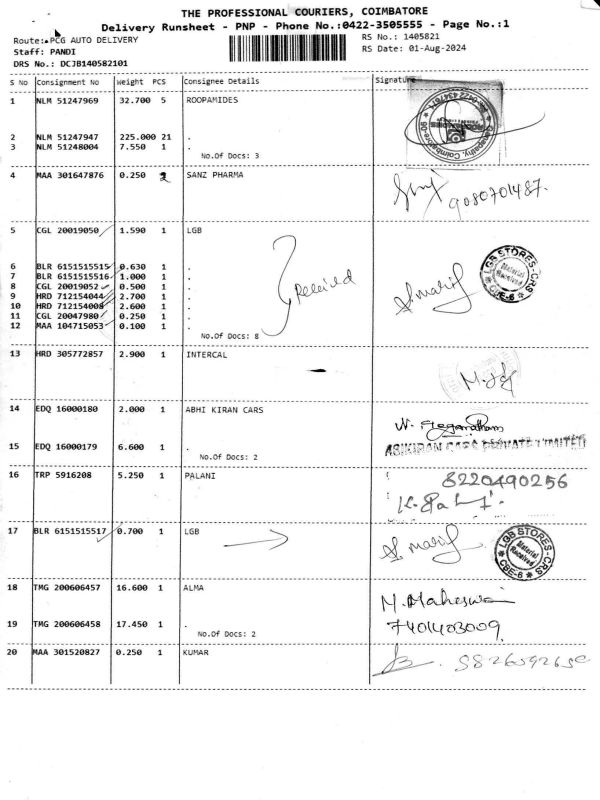 THE PROFESSIONAL COURIERS, COIMBATORE
Delivery Runsheet - PNP - Phone No.:0422-3505555 - Page No.:1
Route: PCG AUTO DELIVERY
RS No.: 1405821
Staff: PANDI
RS Date: 01-Aug-2024
DRS No.: DCJB140582101
S No Consignment No Weight PCS Consignee Details Signature
1 NLM 51247969 32.700 5 ROOPAMIDES
2 NLM 51247947 225.000 21 .
3 NLM 51248004 7.550 1 .
No.Of Docs: 3
4 MAA 301647876 0.250 SANZ PHARMA
9080701487.
5 CGL 20019050 1.590 1 LGB
6 BLR 6151515515 0.630 1 .
7 BLR 6151515516 1.000 1 .
8 CGL 20019052 0.500 1 .
9 HRD 712154044 2.700 1 .
10 HRD 712154008 2.600 1 .
11 CGL 20047980 0.250 1 .
12 MAA 104715053 0.100 1 .
No.Of Docs: 8
Received
LGB STORES-CRS
Material
Received
CBE-6
13 HRD 305772857 2.900 1 INTERCAL
14 EDQ 16000180 2.000 1 ABHI KIRAN CARS
15 EDQ 16000179 6.600 1 .
No.Of Docs: 2
16 TRP 5916208 5.250 1 PALANI
8220490256
17 BLR 6151515517 0.700 1 LGB
LGB STORES-CRS
Material
Received
CBE-6
18 TMG 200606457 16.600 1 ALMA
19 TMG 200606458 17.450 1 .
No.Of Docs: 2
7401403009.
20 MAA 301520827 0.250 1 KUMAR